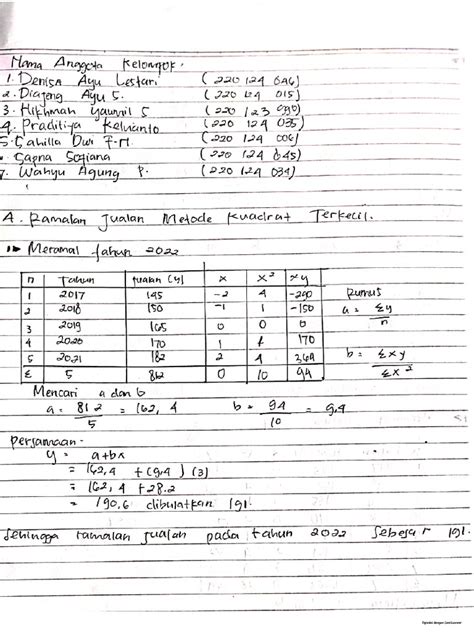 Nama Anggota Kelompok :
1. Denisa Ayu Lestari (220 124 046)
2. Diajeng Ayu S. (220 124 015)
3. Hikhmah Yaumil S (220 123 090)
4. Praditiya Kelvianto (220 124 035)
5. Sahilla Dwi F.M. (220 124 006)
Sapna Sogiana (220 124 045)
7. Wahyu Agung P. (220 124 034)
A. Ramalan Jualan Metode Kuadrat Terkecil.
Meramal tahun 2022
n Tahun jualan (y) x x² xy
1 2017 145 -2 4 -290 Rumus
2 2018 150 -1 1 -150 a = Σy / n
3 2019 165 0 0 0
4 2020 170 1 1 170 b = Σxy / Σx²
5 2021 182 2 4 364
Σ 5 812 0 10 94
Mencari a dan b
a = 812 / 5 = 162,4 b = 94 / 10 = 9,4
persamaan -
y = a+bx
= 162,4 + (9,4) (3)
= 162,4 + 28.2
= 190,6 dibulatkan 191.
Sehingga ramalan jualan pada tahun 2022 Sebesar 191.